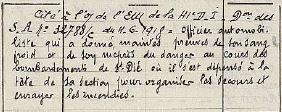 Cité à l'O. de l'EM de la 41e D.I Don des
S.A. n° 32788/ du 11.6.1918 = Officier automobi
liste qui a donné maintes preuves de son sang
froid et de son mépris du danger au cours des
bombardements de St Dié où il s'est dépensé à la
tête de sa section pour organiser les secours et
enrayer les incendies.